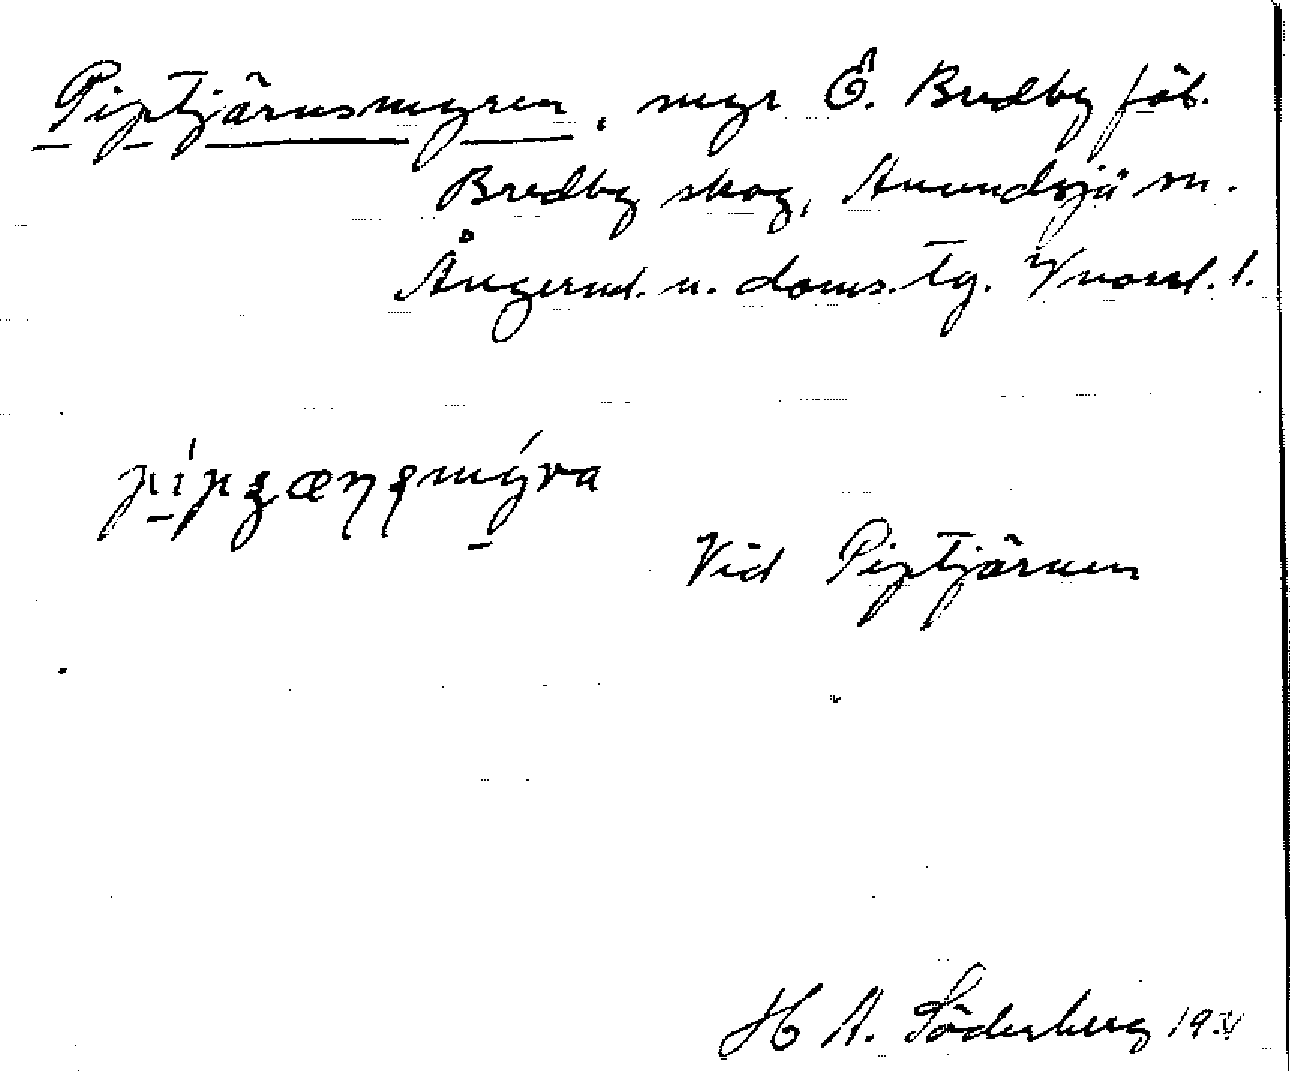 Piptjärnsmyren, myr Ö. Bredby fäb.
Bredby skog, Anundsjö sn.
Ångerml. n. doms. tg. Vnorrl. l.
Vid Piptjärnen
H A. Söderberg